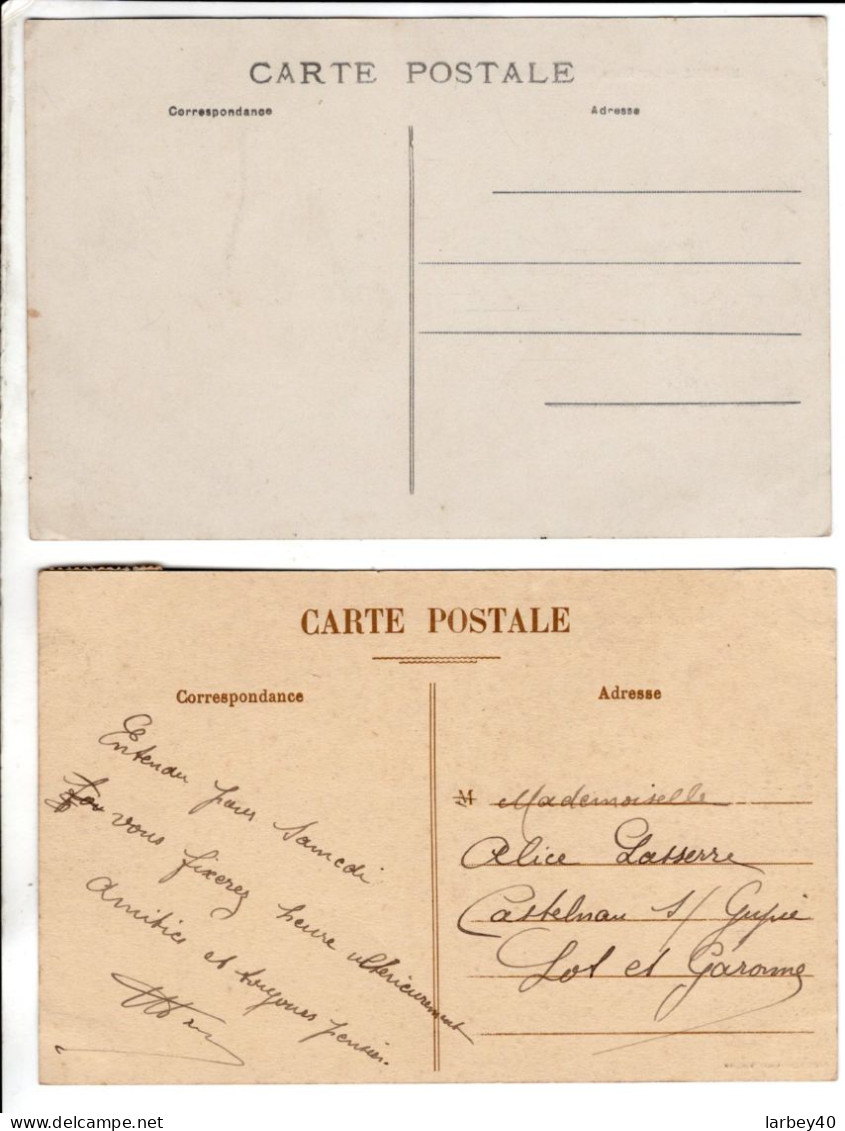 CARTE POSTALE
Correspondance
Adresse
CARTE POSTALE
Correspondance
Entendu pour Samedi
vous fixerez heure ultérieurement
Amitiés et toujours pensées.
Adresse
M Mademoiselle
Alice Lasserre
Castelnau s/ Gupie
Lot et Garonne
larbey40